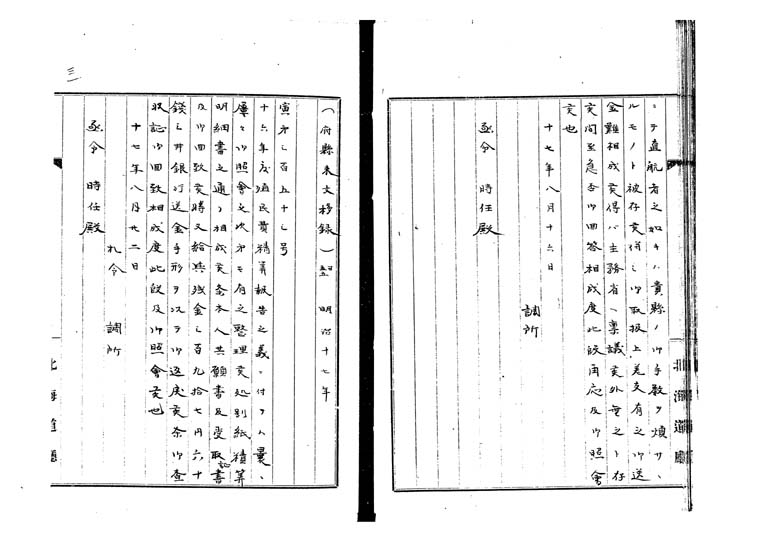 ニテ直航者之如キハ貴縣ノ御手数ヲ煩サヽ
ルモノト被存候儀ニ御取扱上差支有之御送
金難相成候得バ主務省ヘ稟議候外無之ト存
候間至急否御回答相成度此段再応及御照會
候也
十七年八月十六日
調所
丞令 時任殿
(府縣来文移録) 明治十七年
寅第二百五十二号
十六年度殖民費精算報告之義ニ付テハ曩ニ
屡々御照會之次第モ有之整理候処別紙精算
明細書之通リ相成候条本人共願書及受取証書
及御回致候時又給与残金二百九拾七円六十
銭ニ井銀行送金手形ヲ以テ御返戻候条御査
収証御回致相成度此段及御照會候也
十七年八月廿二日
札令 調所
丞令 時任殿
北海道廳
北海道廳
三